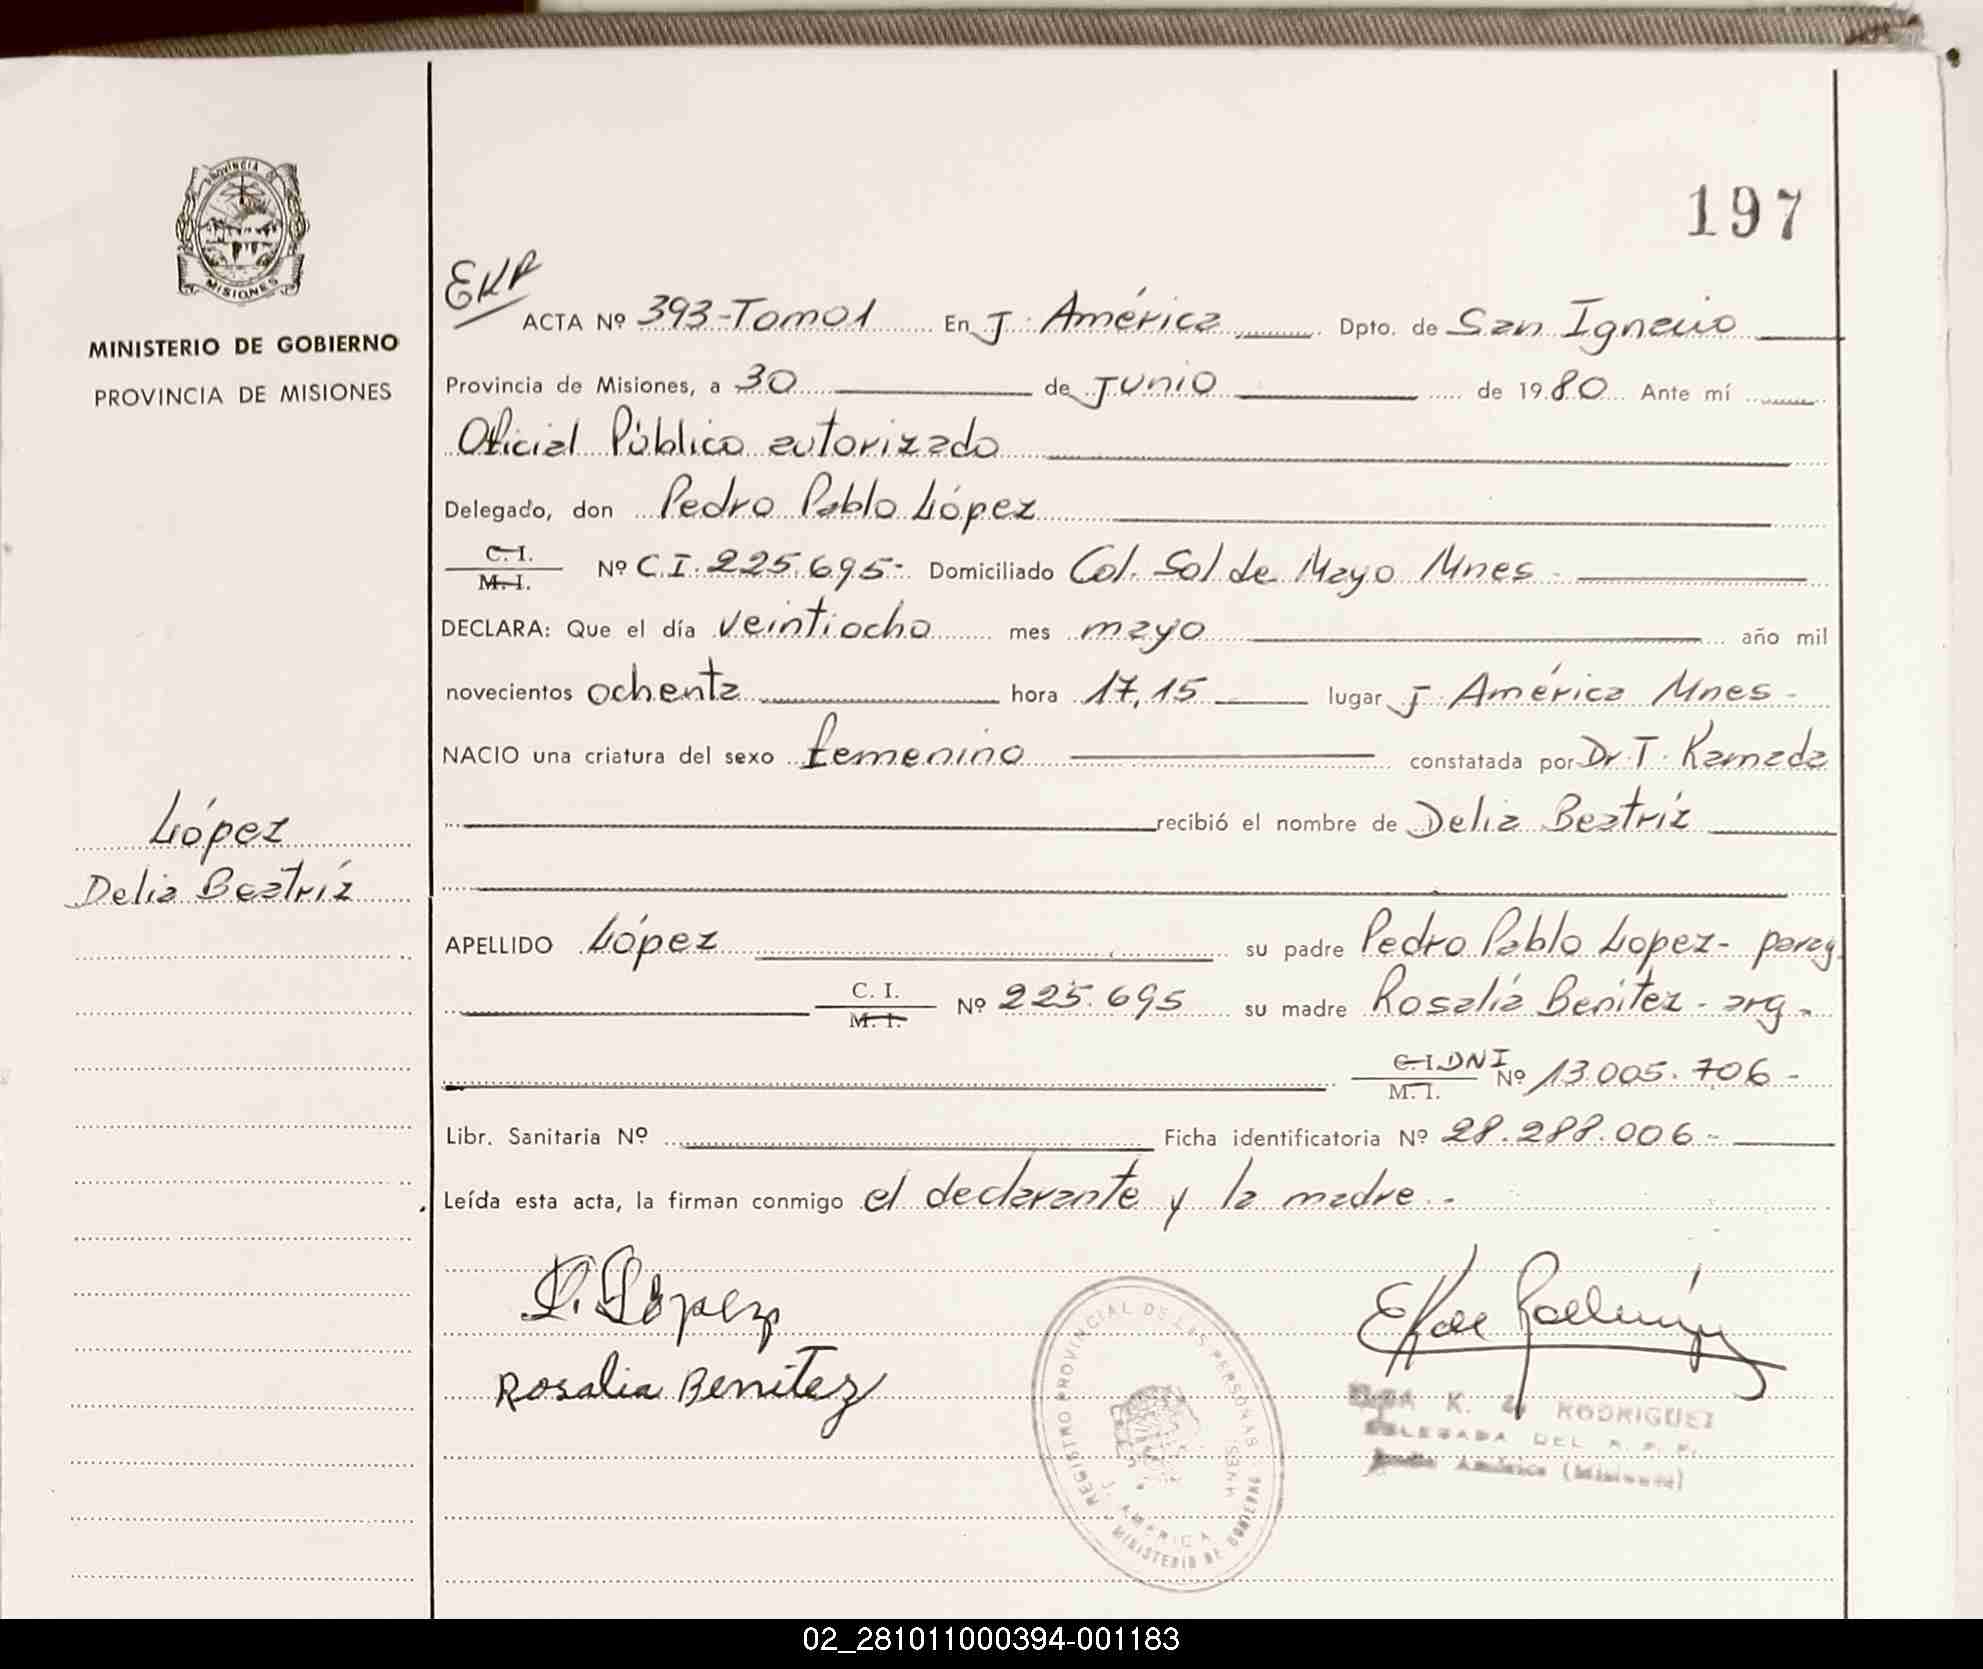 PROVINCIA DE
MISIONES
MINISTERIO DE GOBIERNO
PROVINCIA DE MISIONES
197
EKR
ACTA Nº 393-Tomo1 En J. América Dpto. de San Ignacio
Provincia de Misiones, a 30 de Junio de 1980 Ante mí
Oficial Público autorizado
Delegado, don Pedro Pablo López
C. I.
M. I. Nº C.I. 225.695- Domiciliado Col. Sol de Mayo Mnes-
DECLARA: Que el día veintiocho mes mayo año mil
novecientos ochenta hora 17,15 lugar J. América Mnes-
NACIO una criatura del sexo femenino constatada por Dr. T. Kameda
recibió el nombre de Delia Beatríz
López
Delia Beatríz
APELLIDO López su padre Pedro Pablo Lopez- parag.
C. I.
M. I. Nº 225.695 su madre Rosalía Benítez- arg-
C. I. DNI
M. I. Nº 13.005.706-
Libr. Sanitaria Nº Ficha identificatoria Nº 28.288.006-
Leída esta acta, la firman conmigo el declarante y la madre.-
P. López
Rosalia Benitez
REGISTRO PROVINCIAL DE LAS PERSONAS
J. AMERICA MNES.
MINISTERIO DE GOBIERNO
K. de RODRIGUEZ
DELEGADA DEL R. P. P.
América (Misiones)
02_281011000394-001183